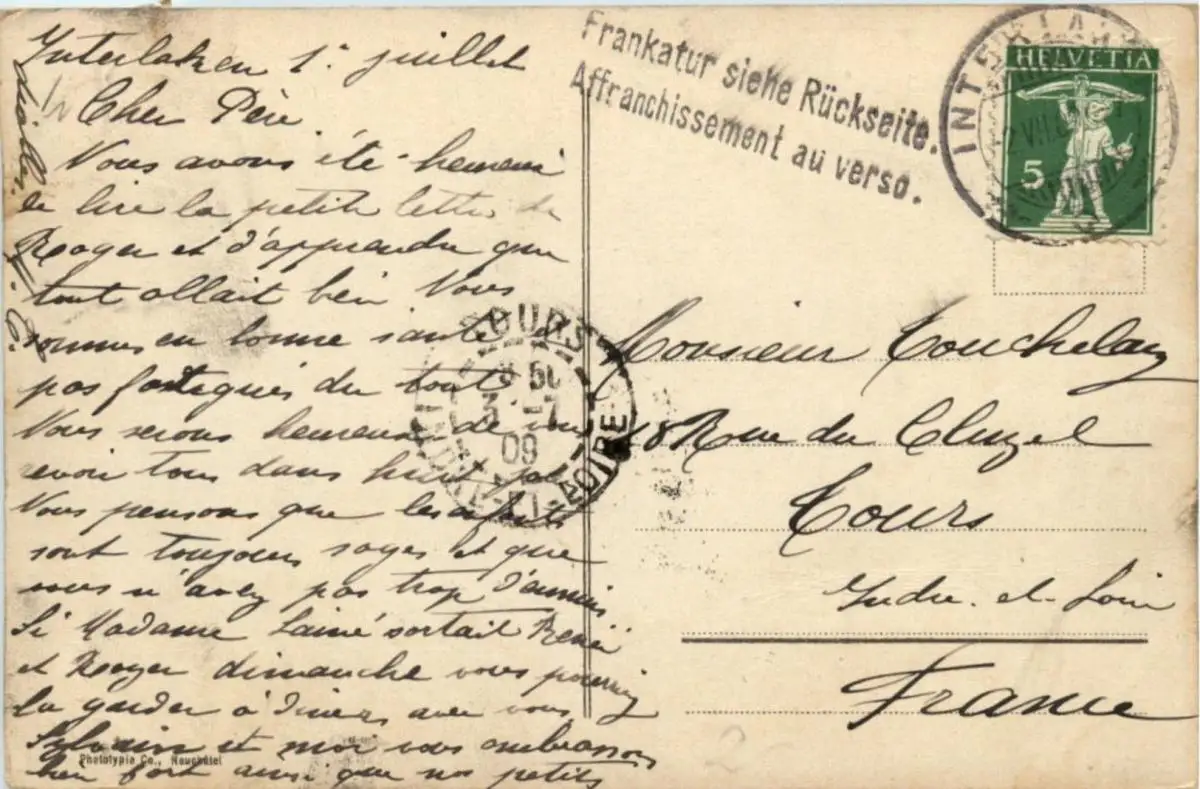 Interlaken 1er juillet
Cher Père
Nous avons été heureux
de lire la petite lettre de
Roger et d'apprendre que
tout allait bien Nous
sommes en bonne santé
pas fatigués du tout
Nous serons heureux de vous
revoir tous dans huit jours
Nous pensons que les enfants
sont toujours sages et que
vous n'avez pas trop d'ennuis
Si Madame Lainé sortait René
et Roger dimanche vous pourriez
la garder à diner avec vous
Sylvain et moi vous embrassons
bien fort ainsi que nos petits
Phototypie Co., Neuchâtel
Frankatur siehe Rückseite.
Affranchissement au verso.
INTERLAKEN
HELVETIA
5
TOURS
3 - 7
09
INDRE-ET-LOIRE
Monsieur
18 Rue du Cluzel
Tours
Indre-et-Loire
France